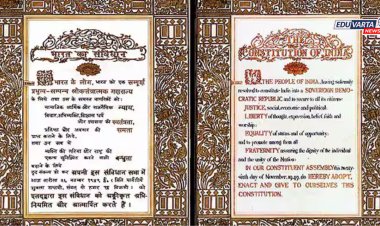 EDUVARTA
NEWS
भारत का संविधान
भारत के लोग, भारत को एक सम्पूर्ण
प्रभुत्व-सम्पन्न लोकतंत्रात्मक गणराज्य
के लिए, तथा उस के समस्त नागरिकों को:
सामाजिक, आर्थिक और राजनैतिक न्याय,
विचार, अभिव्यक्ति, विश्वास, धर्म
और उपासना की स्वतंत्रता,
प्रतिष्ठा और अवसर की समता
प्राप्त कराने के लिए,
तथा उन सब में
व्यक्ति की गरिमा और राष्ट्र की
एकता सुनिश्चित करने वाली बन्धुता
बढ़ाने के लिए
दृढ़ संकल्प हो कर अपनी इस संविधान सभा में
आज तारीख २६ नवम्बर, १९४९ ई० (मिति मार्गशीर्ष
शुक्ला सप्तमी, संवत् दो हजार छह विक्रमी) को
एतद्द्वारा इस संविधान को अंगीकृत, अधि-
नियमित और आत्मार्पित करते हैं।
THE
CONSTITUTION OF INDIA
WE, THE PEOPLE OF INDIA, having solemnly
resolved to constitute India into a SOVEREIGN DEMO-
CRATIC REPUBLIC and to secure to all its citizens:
JUSTICE, social, economic and political;
LIBERTY of thought, expression, belief, faith and
worship;
EQUALITY of status and of opportunity;
and to promote among them all
FRATERNITY assuring the dignity of the individual
and the unity of the Nation;
IN OUR CONSTITUENT ASSEMBLY this twenty-
sixth day of November, 1949, do HEREBY ADOPT,
ENACT AND GIVE TO OURSELVES THIS
CONSTITUTION.